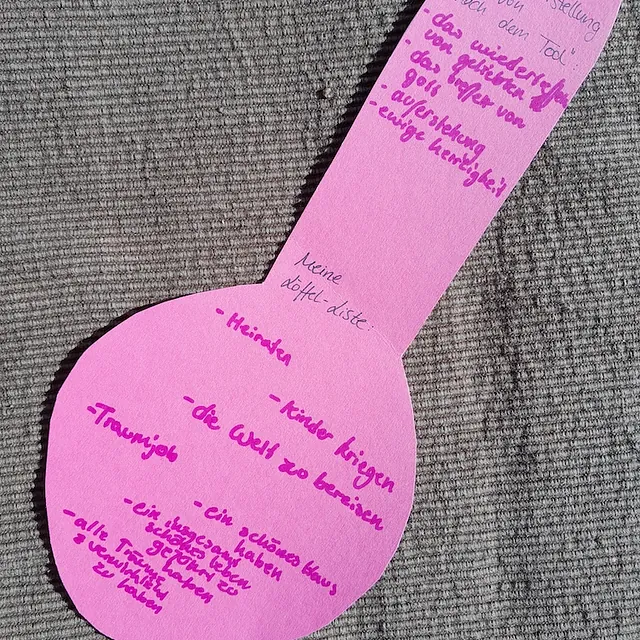 von
stellung
dem Tod":
- das wiedertreffen
von geliebten
- das treffen von
gott
- auferstehung
- ewige
Meine
Löffel-Liste:
- Heiraten
- Kinder kriegen
- die Welt zu bereisen
- Traumjob
- ein schönes Haus
haben
- ein insgesamt
schönes leben
geführt zu
haben
- alle Träume
verwirklicht
zu haben